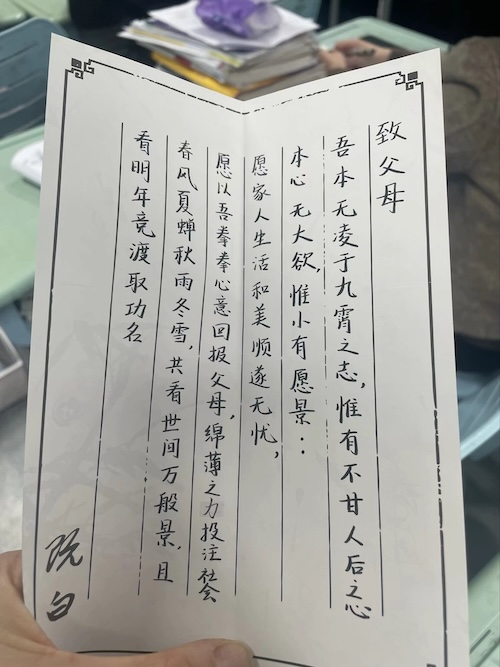 致父母
吾本无凌于九霄之志，惟有不甘人后之心
本心无大欲，惟小有愿景：
愿家人生活和美顺遂无忧，
愿以吾拳拳心意回报父母，绵薄之力投注社会
春风夏蝉秋雨冬雪，共看世间万般景，且
看明年竞渡取功名
阮白